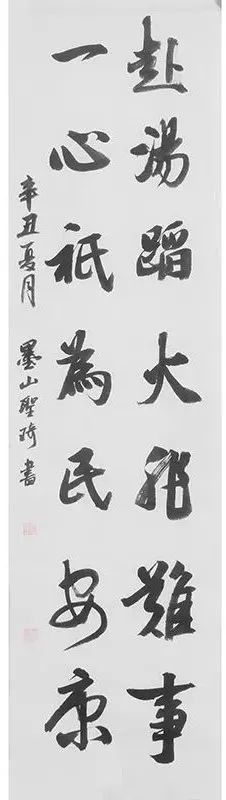 赴湯蹈火非難事
一心祇為民安康
辛丑夏月 墨山聖琦書